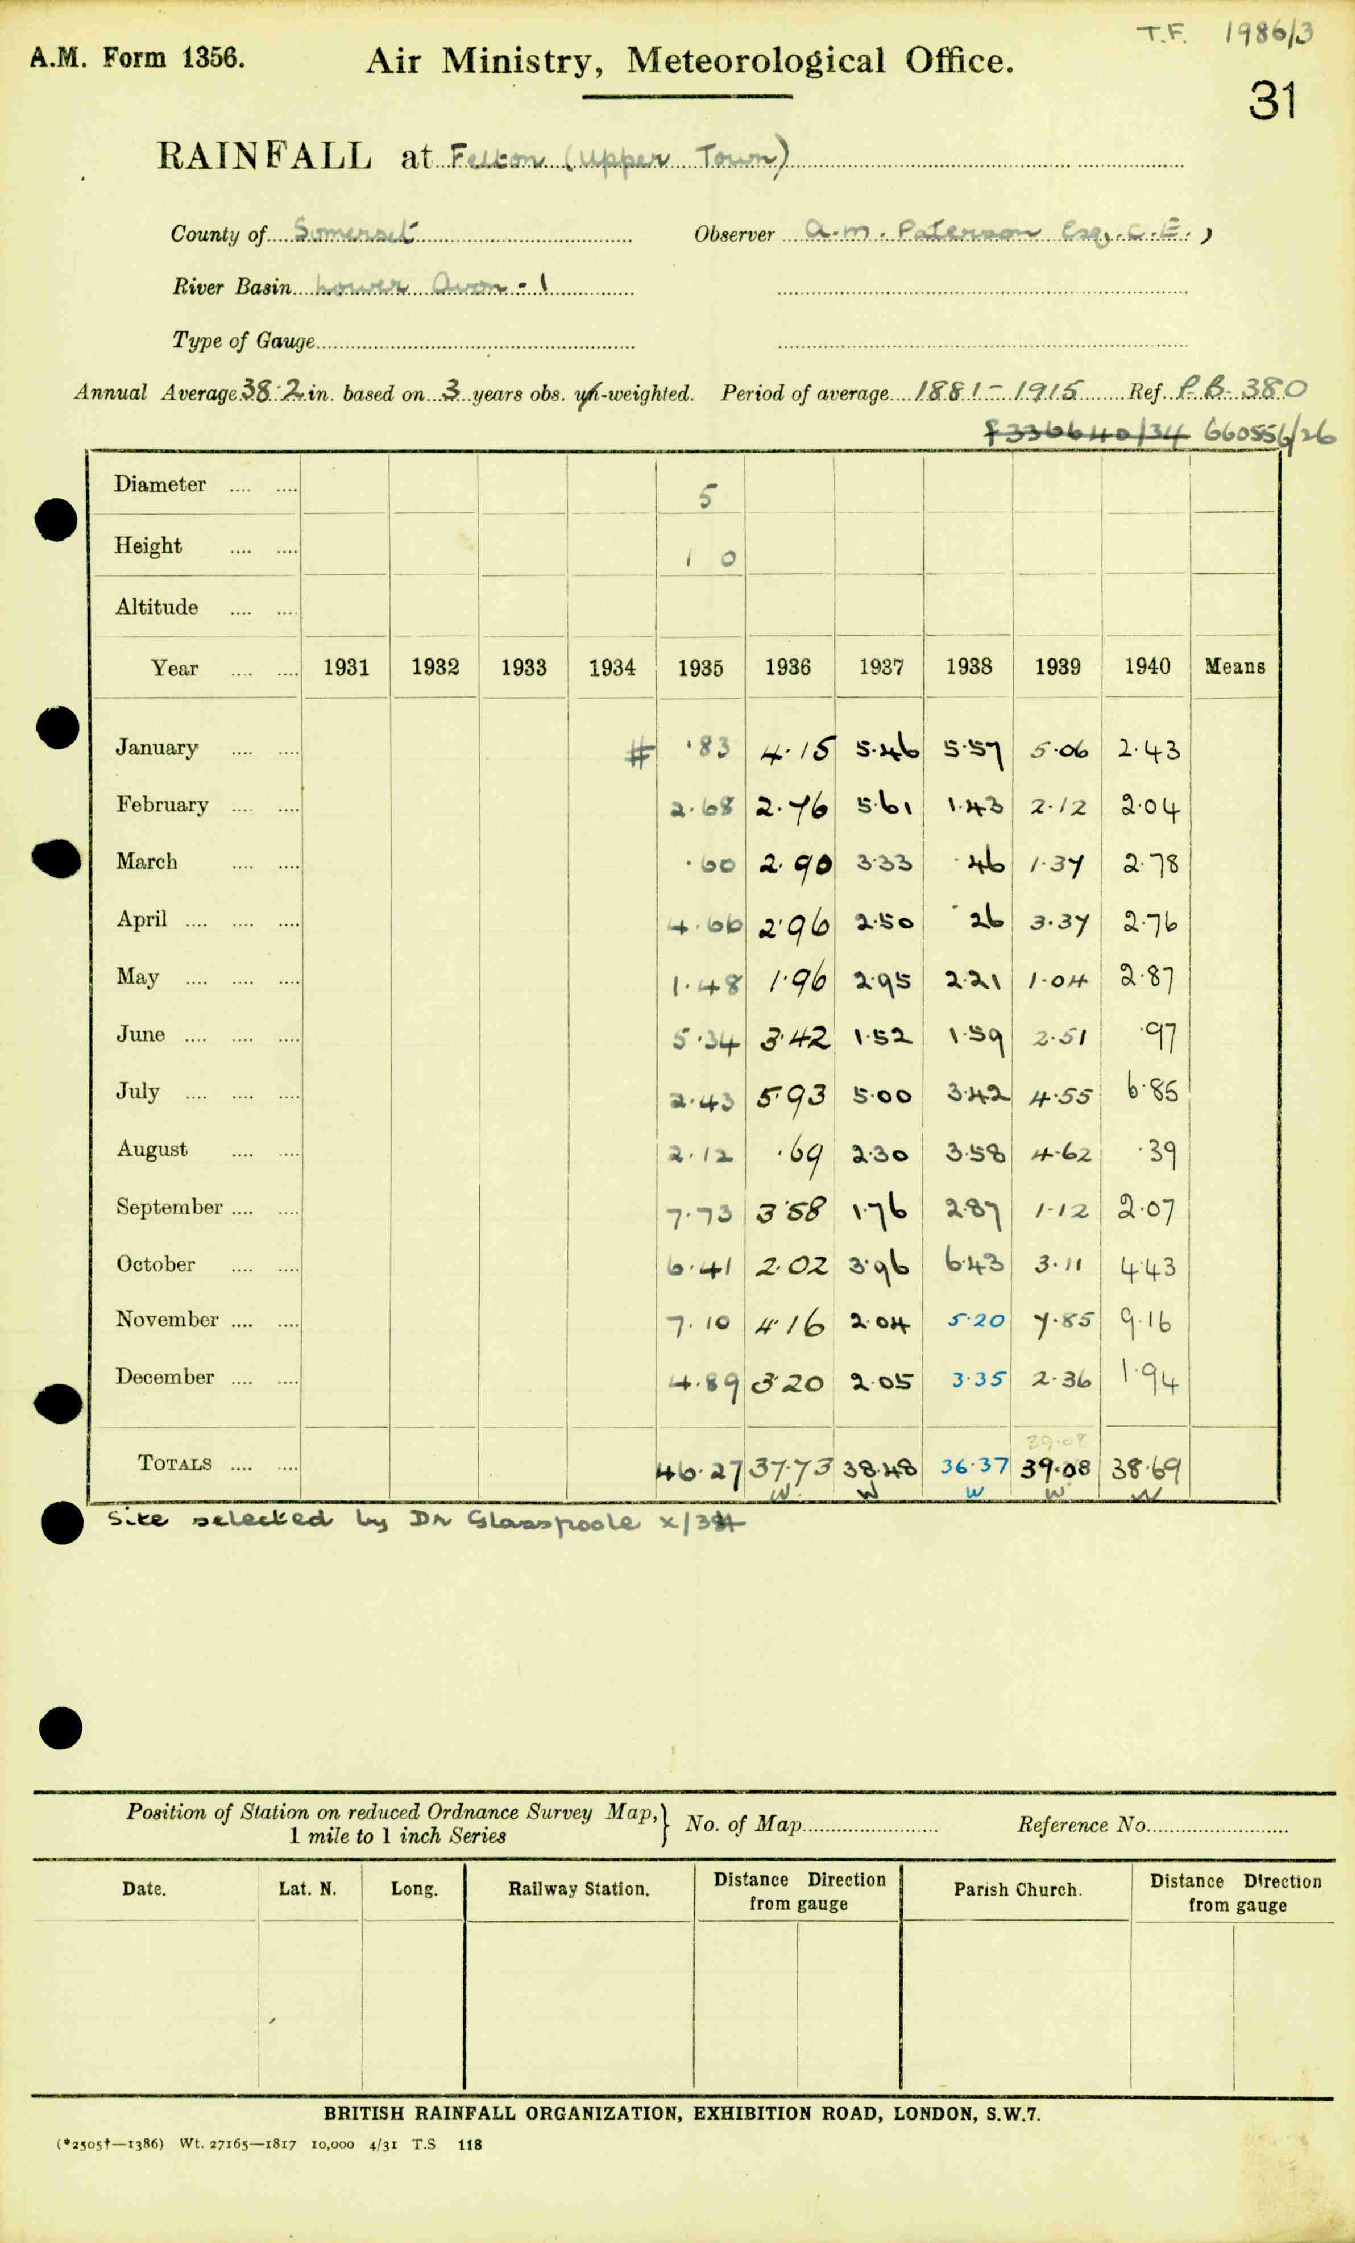 T.F. 1986/3
A.M. Form 1356. Air Ministry, Meteorological Office.
31
RAINFALL at Felton (Upper Town)
County of Somerset Observer A.M. Paterson Esq., C.E.,
River Basin Lower Avon - 1
Type of Gauge
Annual Average 38.2 in. based on 3 years obs. -weighted. Period of average 1881-1915 Ref. P.B. 380
f336640/34 660556/26
Diameter .... .... 5
Height .... .... 1 0
Altitude .... ....
Year .... .... 1931 1932 1933 1934 1935 1936 1937 1938 1939 1940 Means
January .... .... # .83 4.15 5.46 5.57 5.06 2.43
February .... .... 2.68 2.76 5.61 1.43 2.12 2.04
March .... .... .60 2.90 3.33 .46 1.37 2.78
April .... .... .... 4.66 2.96 2.50 .26 3.37 2.76
May .... .... .... 1.48 1.96 2.95 2.21 1.04 2.87
June .... .... .... 5.34 3.42 1.52 1.59 2.51 .97
July .... .... .... 2.43 5.93 5.00 3.42 4.55 6.85
August .... .... 2.12 .69 2.30 3.58 4.62 .39
September .... .... 7.73 3.58 1.76 2.87 1.12 2.07
October .... .... 6.41 2.02 3.96 6.43 3.11 4.43
November .... .... 7.10 4.16 2.04 5.20 7.85 9.16
December .... .... 4.89 3.20 2.05 3.35 2.36 1.94
39.08
TOTALS .... .... 46.27 37.73 38.48 36.37 39.08 38.69
W W W W W
Site selected by Dr Glasspoole x/34
Position of Station on reduced Ordnance Survey Map, } No. of Map Reference No.
1 mile to 1 inch Series
Date. Lat. N. Long. Railway Station. Distance Direction from gauge Parish Church. Distance Direction from gauge
BRITISH RAINFALL ORGANIZATION, EXHIBITION ROAD, LONDON, S.W.7.
(*2505†—1386) Wt. 27165—1817 10,000 4/31 T.S 118